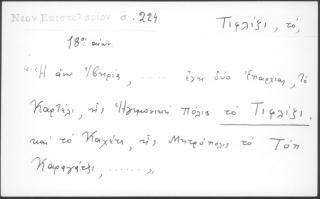 Νέον Επιστολάριον σ. 224
Τιφλίζι, τό,
18ος αιών
"Η άνω Ιβηρία, ...... έχει δύο Επαρχίας, Τό
Καρτέλι, της Ηγεμονική Πόλις το Τιφλίζι.
και το Καχέτι, της Μητρόπολις το Τόπ
Καραγάτζι, ....... "